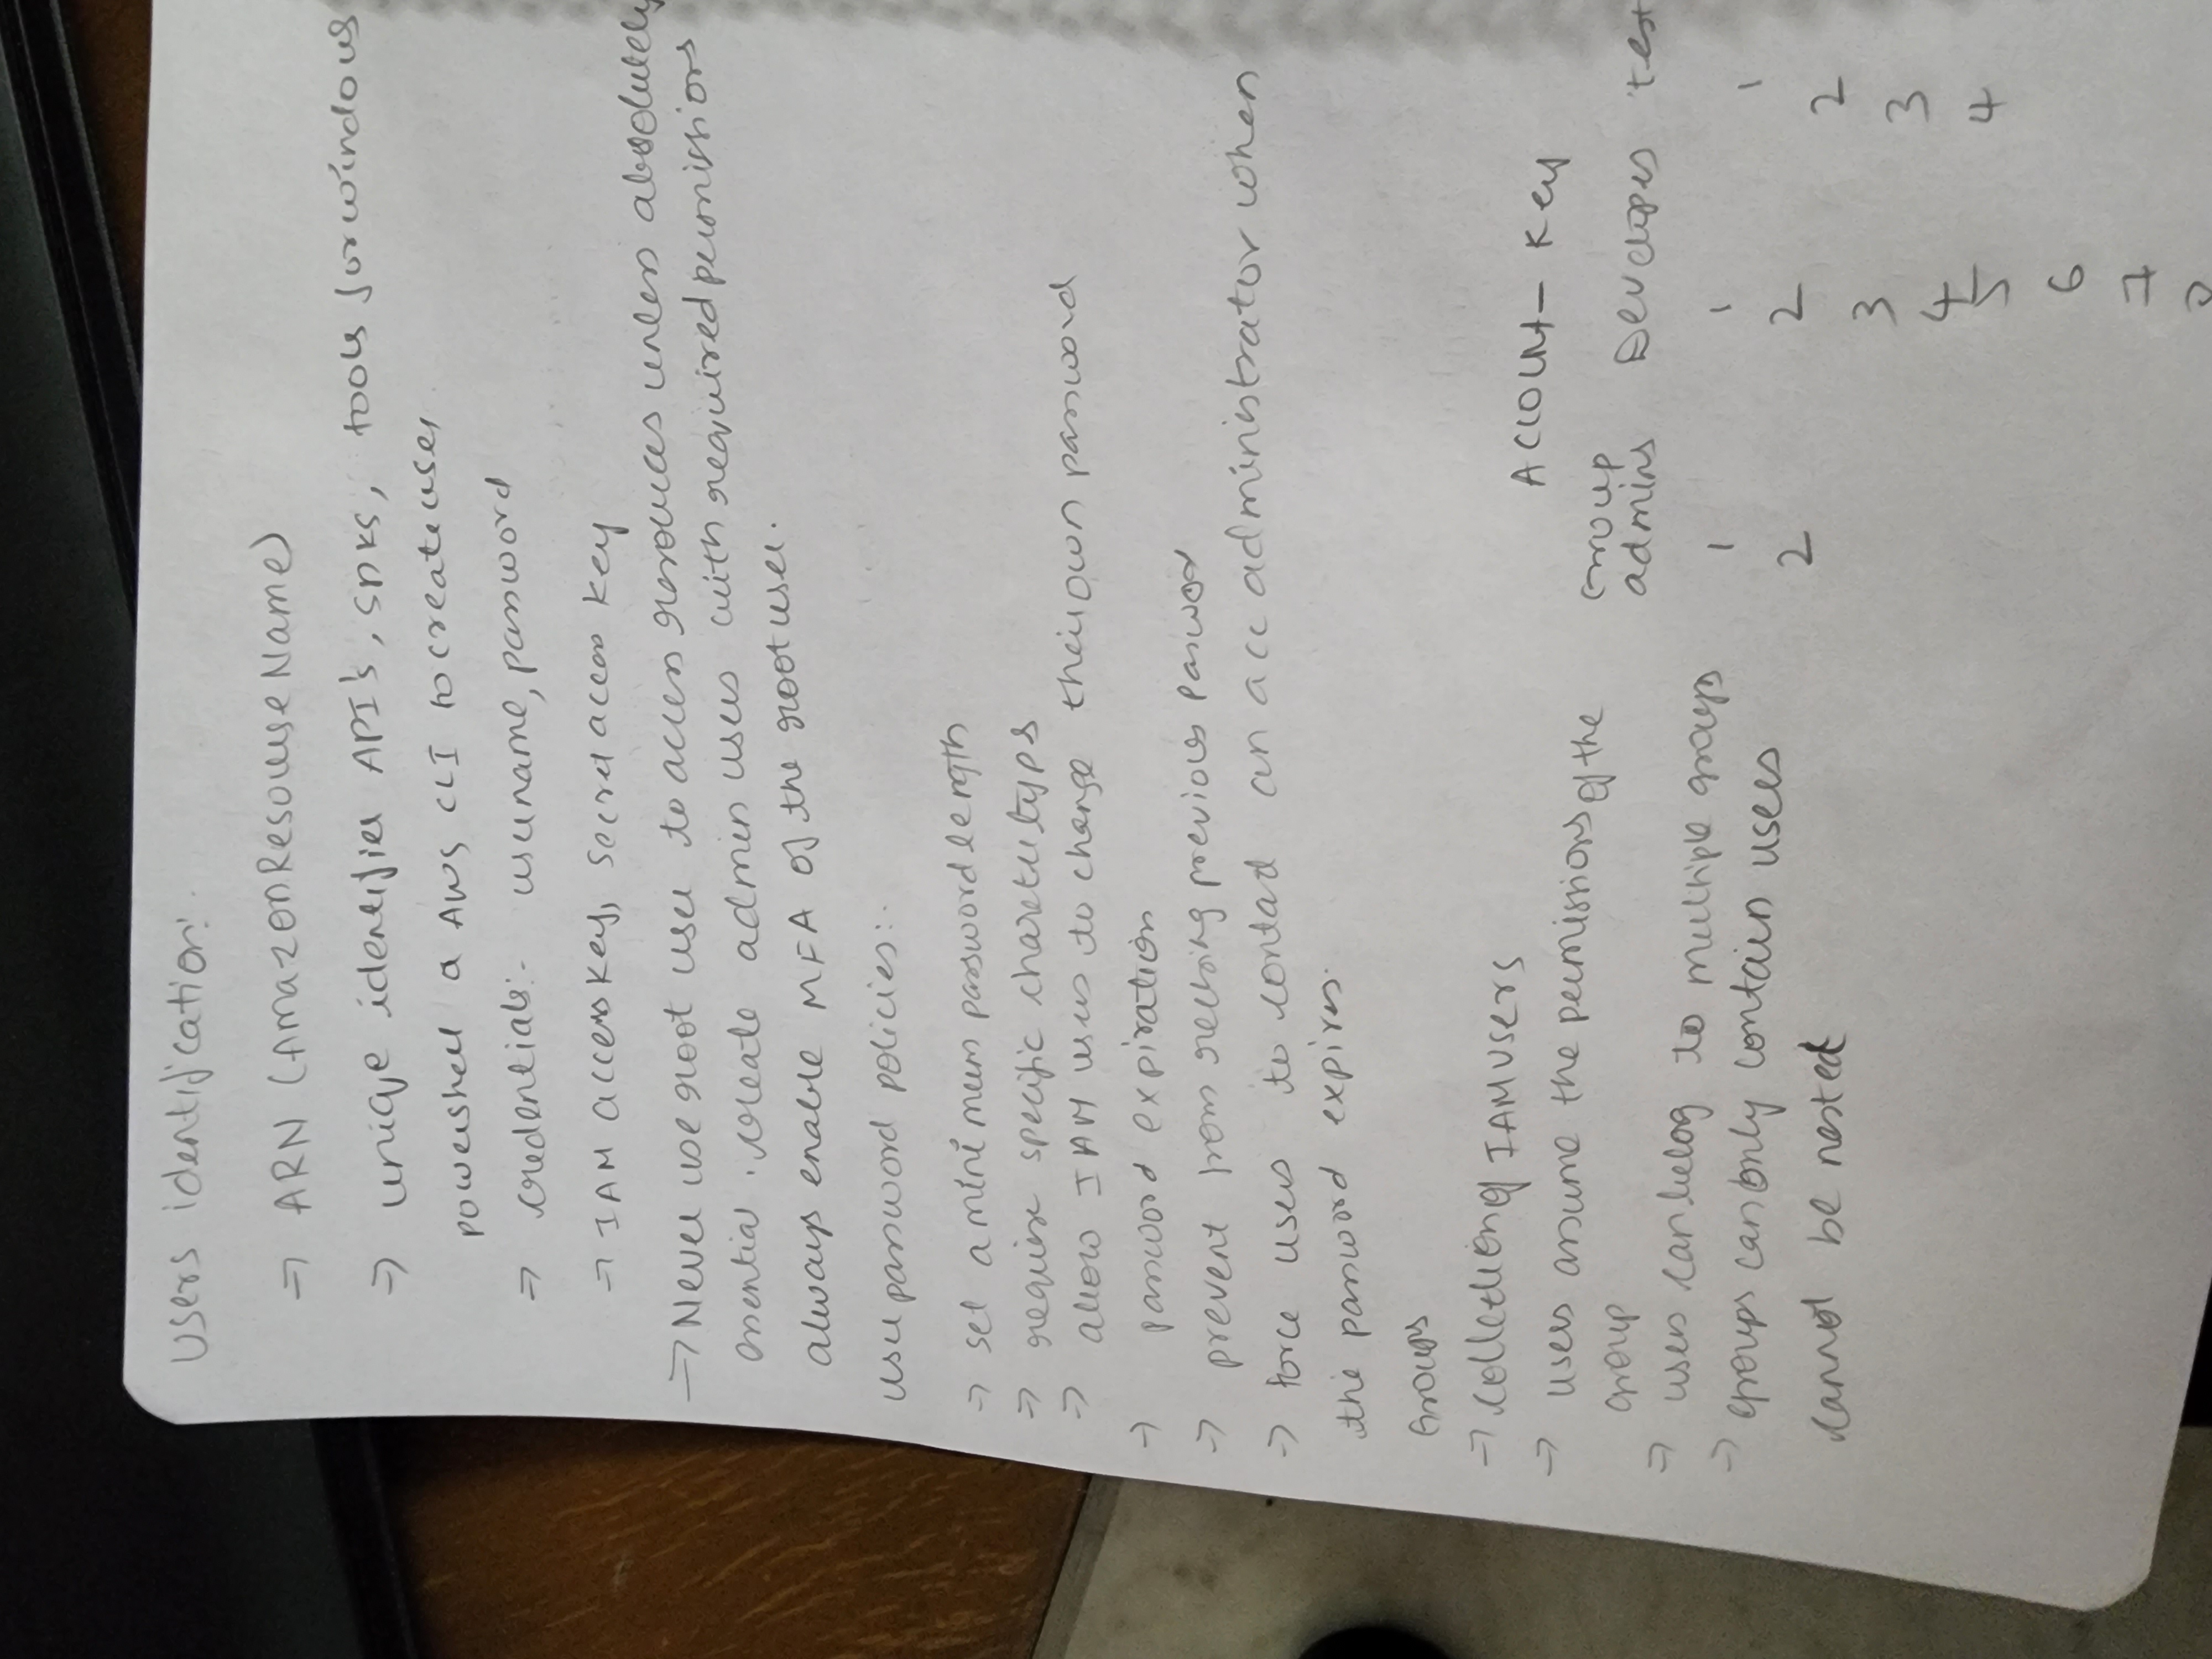 Users identification:
=> ARN (Amazon Resourse Name)
=> unique identifier API's, SDKS, tools for windows
powershell a AWS CLI to create user
=> credentials:- username, password
=> IAM access key, secret access key
=> Never use root user to access resources unless absolutely
essential. create admin users with required permissions
always enable MFA of the root user.
user password policies:-
=> set a minimum password length
=> require specific charcter typs
=> allow IAM users to change their own password
-> password expiration
-> prevent from reusing previous passwor
-> force users to contact an acc administrator when
the password expires.
Groups
-> collection of IAM users
-> users assume the permissions of the
group
-> users can belog to multiple groups
-> groups can only contain users
cannot be nested
Account - Key
Group
admins Developes test
1 1 1
2 2 2
3 3
4 4
5
6
7